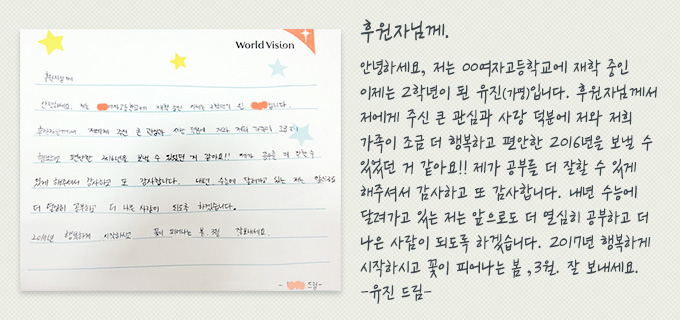 World Vision
후원자님께
안녕하세요, 저는 여자고등학교에 재학 중인 이제는 2학년이 된 입니다.
후원자님께서 저에게 주신 큰 관심과 사랑 덕분에 저와 저희 가족이 조금 더
행복하고 편안한 2016년을 보낼 수 있었던 거 같아요!! 제가 공부를 더 잘할 수
있게 해주셔서 감사하고 또 감사합니다. 내년 수능에 달려가고 있는 저는 앞으로도
더 열심히 공부하고 더 나은 사람이 되도록 하겠습니다.
2017년 행복하게 시작하시고 꽃이 피어나는 봄, 3월. 잘 보내세요.
- 드림-
후원자님께.
안녕하세요, 저는 OO여자고등학교에 재학 중인
이제는 2학년이 된 유진(가명)입니다. 후원자님께서
저에게 주신 큰 관심과 사랑 덕분에 저와 저희
가족이 조금 더 행복하고 편안한 2016년을 보낼 수
있었던 거 같아요!! 제가 공부를 더 잘할 수 있게
해주셔서 감사하고 또 감사합니다. 내년 수능에
달려가고 있는 저는 앞으로도 더 열심히 공부하고 더
나은 사람이 되도록 하겠습니다. 2017년 행복하게
시작하시고 꽃이 피어나는 봄 , 3월. 잘 보내세요.
-유진 드림-